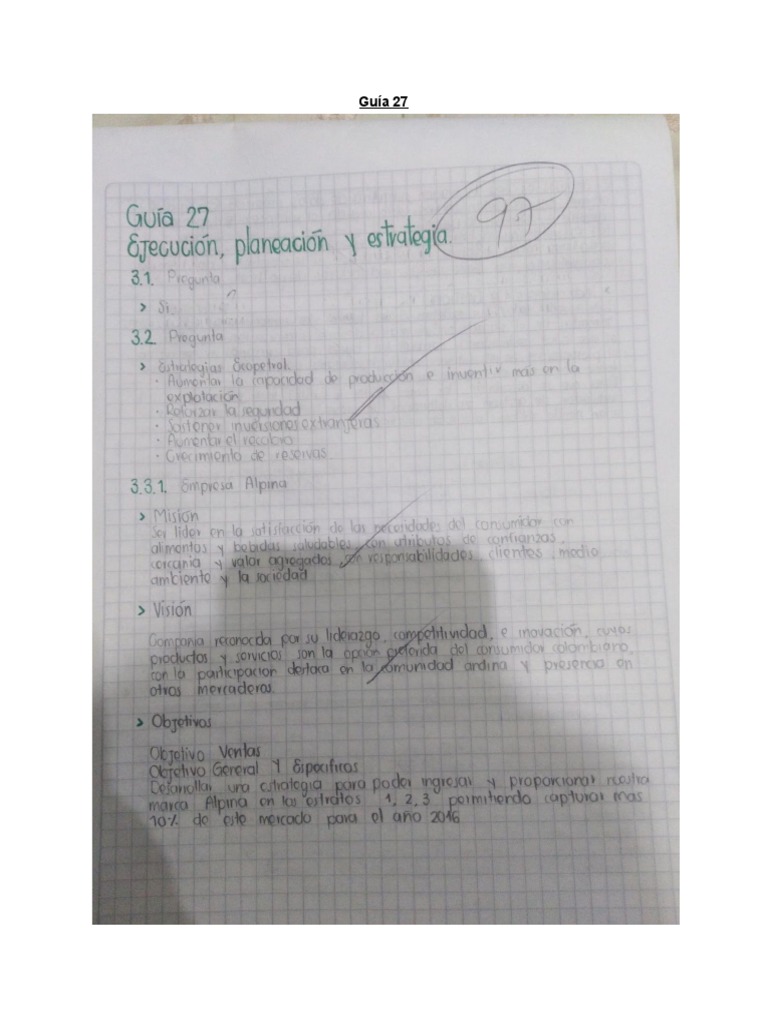 Guía 27
Guía 27
97
Ejecución, planeación y estrategia.
3.1. Pregunta
> Si
3.2 Pregunta
> Estrategias Ecopetrol.
· Aumentar la capacidad de producción e invertir más en la
explotación
· Reforzar la seguridad
· Sostener inversiones extranjeras
· Aumentar el recobro
· Crecimiento de reservas
3.3.1. Empresa Alpina
> Misión
Ser líder en la satisfacción de las necesidades del consumidor con
alimentos y bebidas saludables con atributos de confianzas,
cercania y valor agregados, responsabilidades clientes, medio
ambiente y la sociedad
> Visión
Compania reconocida por su liderazgo, competitividad, e inovación, cuyos
productos y servicios son la opción preferida del consumidor colombiano,
con la participacion destaca en la comunidad andina y presencia en
otros mercaderos.
> Objetivos
Objetivo Ventas
Objetivo General Y Especificos
Desarrollar una estrategia para poder ingresar y proporcionar nuestra
marca Alpina en los estratos 1, 2, 3 permitiendo capturar mas
10% de este mercado para el año 2016